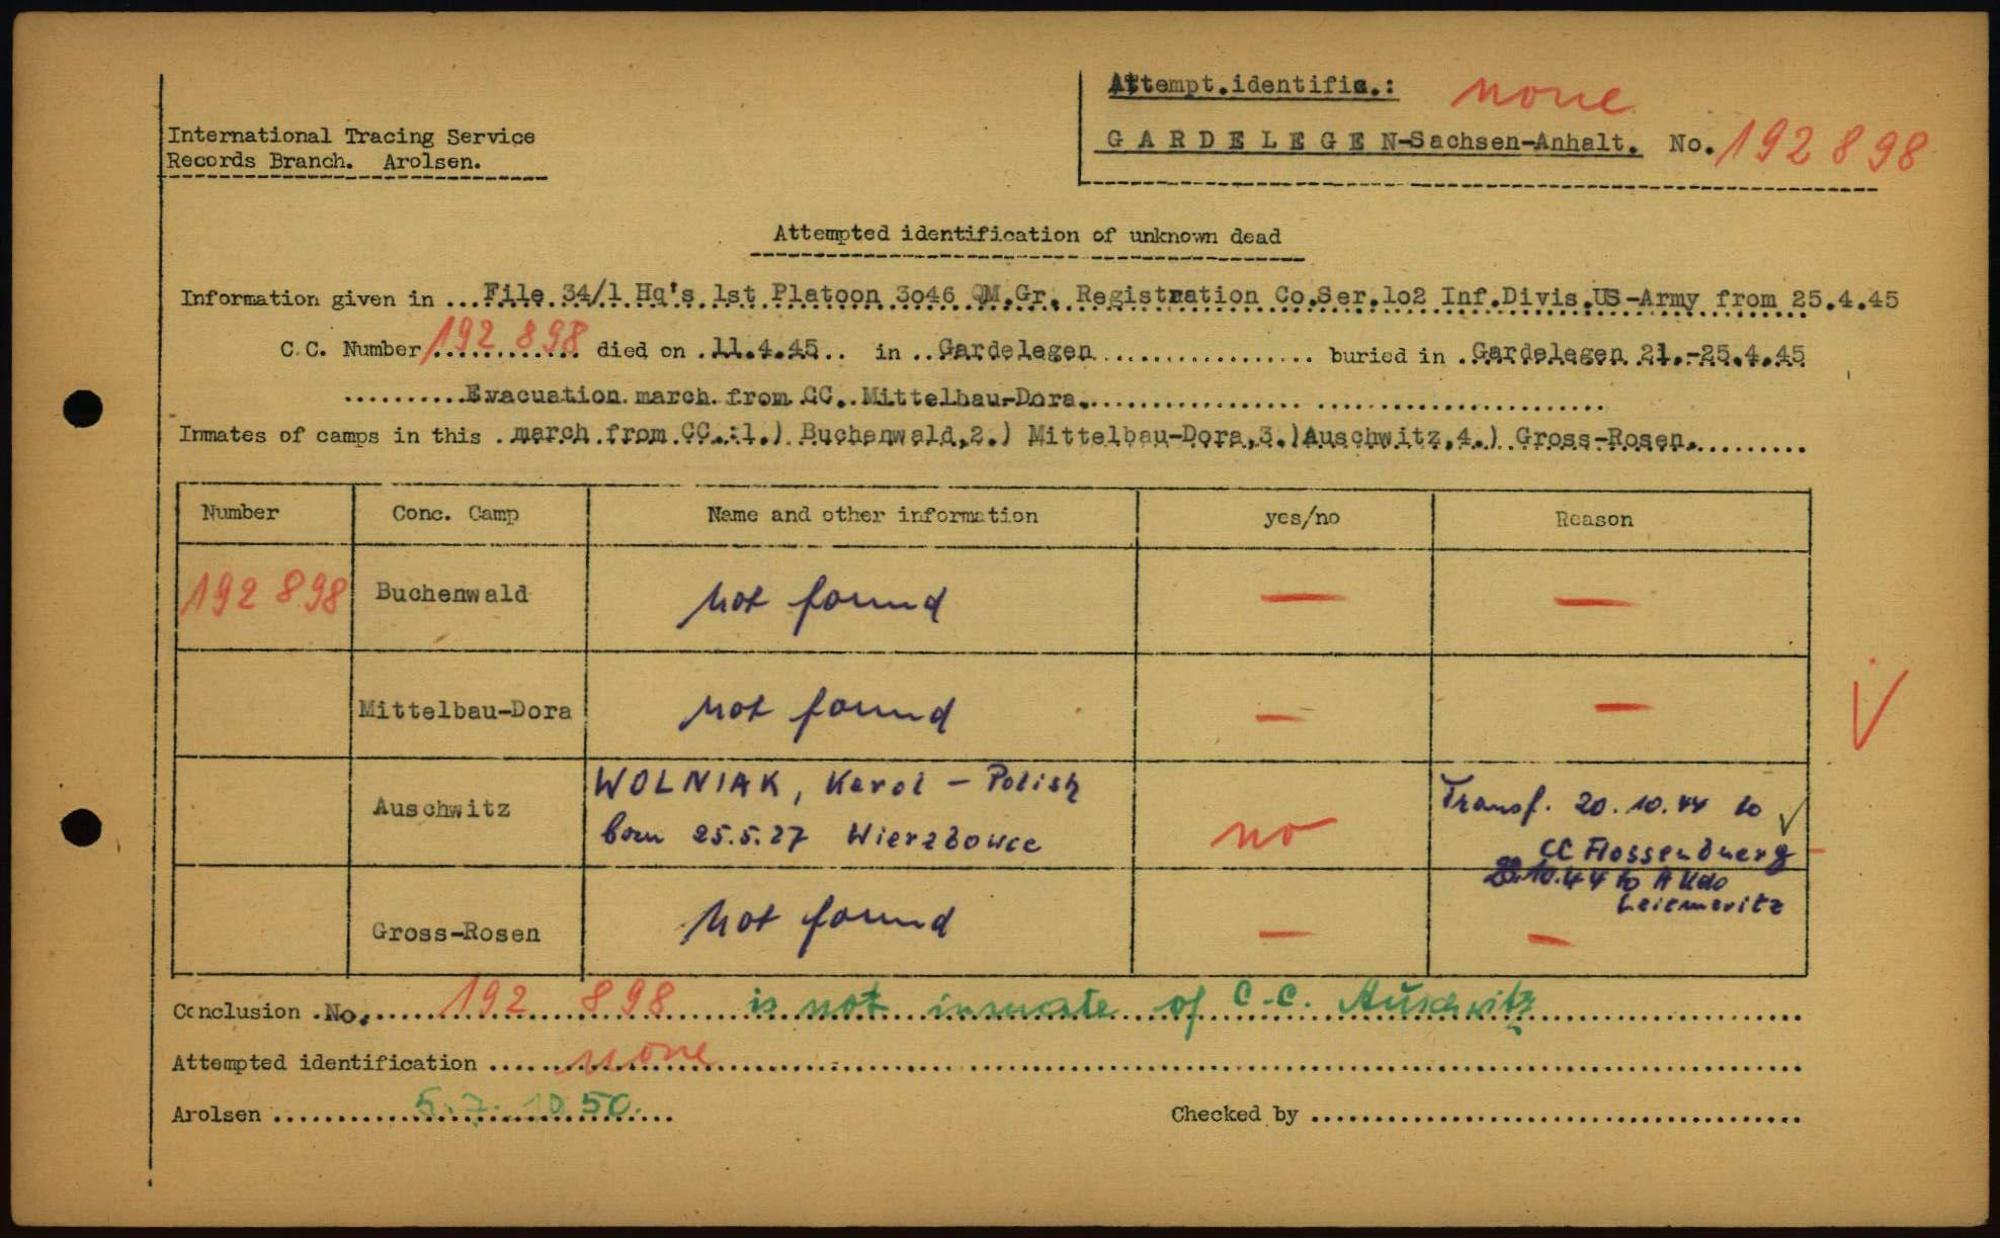 Attempt.identific.: none
International Tracing Service
Records Branch. Arolsen.
GARDELEGEN-Sachsen-Anhalt. No. 192 898
Attempted identification of unknown dead
Information given in ...File 34/1 Hq's 1st Platoon 3o46 QM.Gr. Registration Co.Ser.1o2 Inf.Divis.US-Army from 25.4.45
C.C. Number 192 898 died on .11.4.45.. in ..Gardelegen.................. buried in .Gardelegen 21.-25.4.45
..........Evacuation march from CC. Mittelbau-Dora.......................................
Inmates of camps in this .march from CC.:1.) Buchenwald,2.) Mittelbau-Dora,3.)Auschwitz,4.) Gross-Rosen..........
Number Conc. Camp Name and other information yes/no Reason
192 898 Buchenwald not found — —
Mittelbau-Dora not found — —
WOLNIAK, Karol - Polish
Auschwitz born 25.5.27 Wierzbowce no Transf. 20.10.44 to
CC Flossenbuerg
10.44 to AKdo
Leitmeritz
Gross-Rosen not found — —
Conclusion .No. 192 898 is not inmate of C.C. Auschwitz
Attempted identification none
Arolsen 5.7.1950.
Checked by ........................................